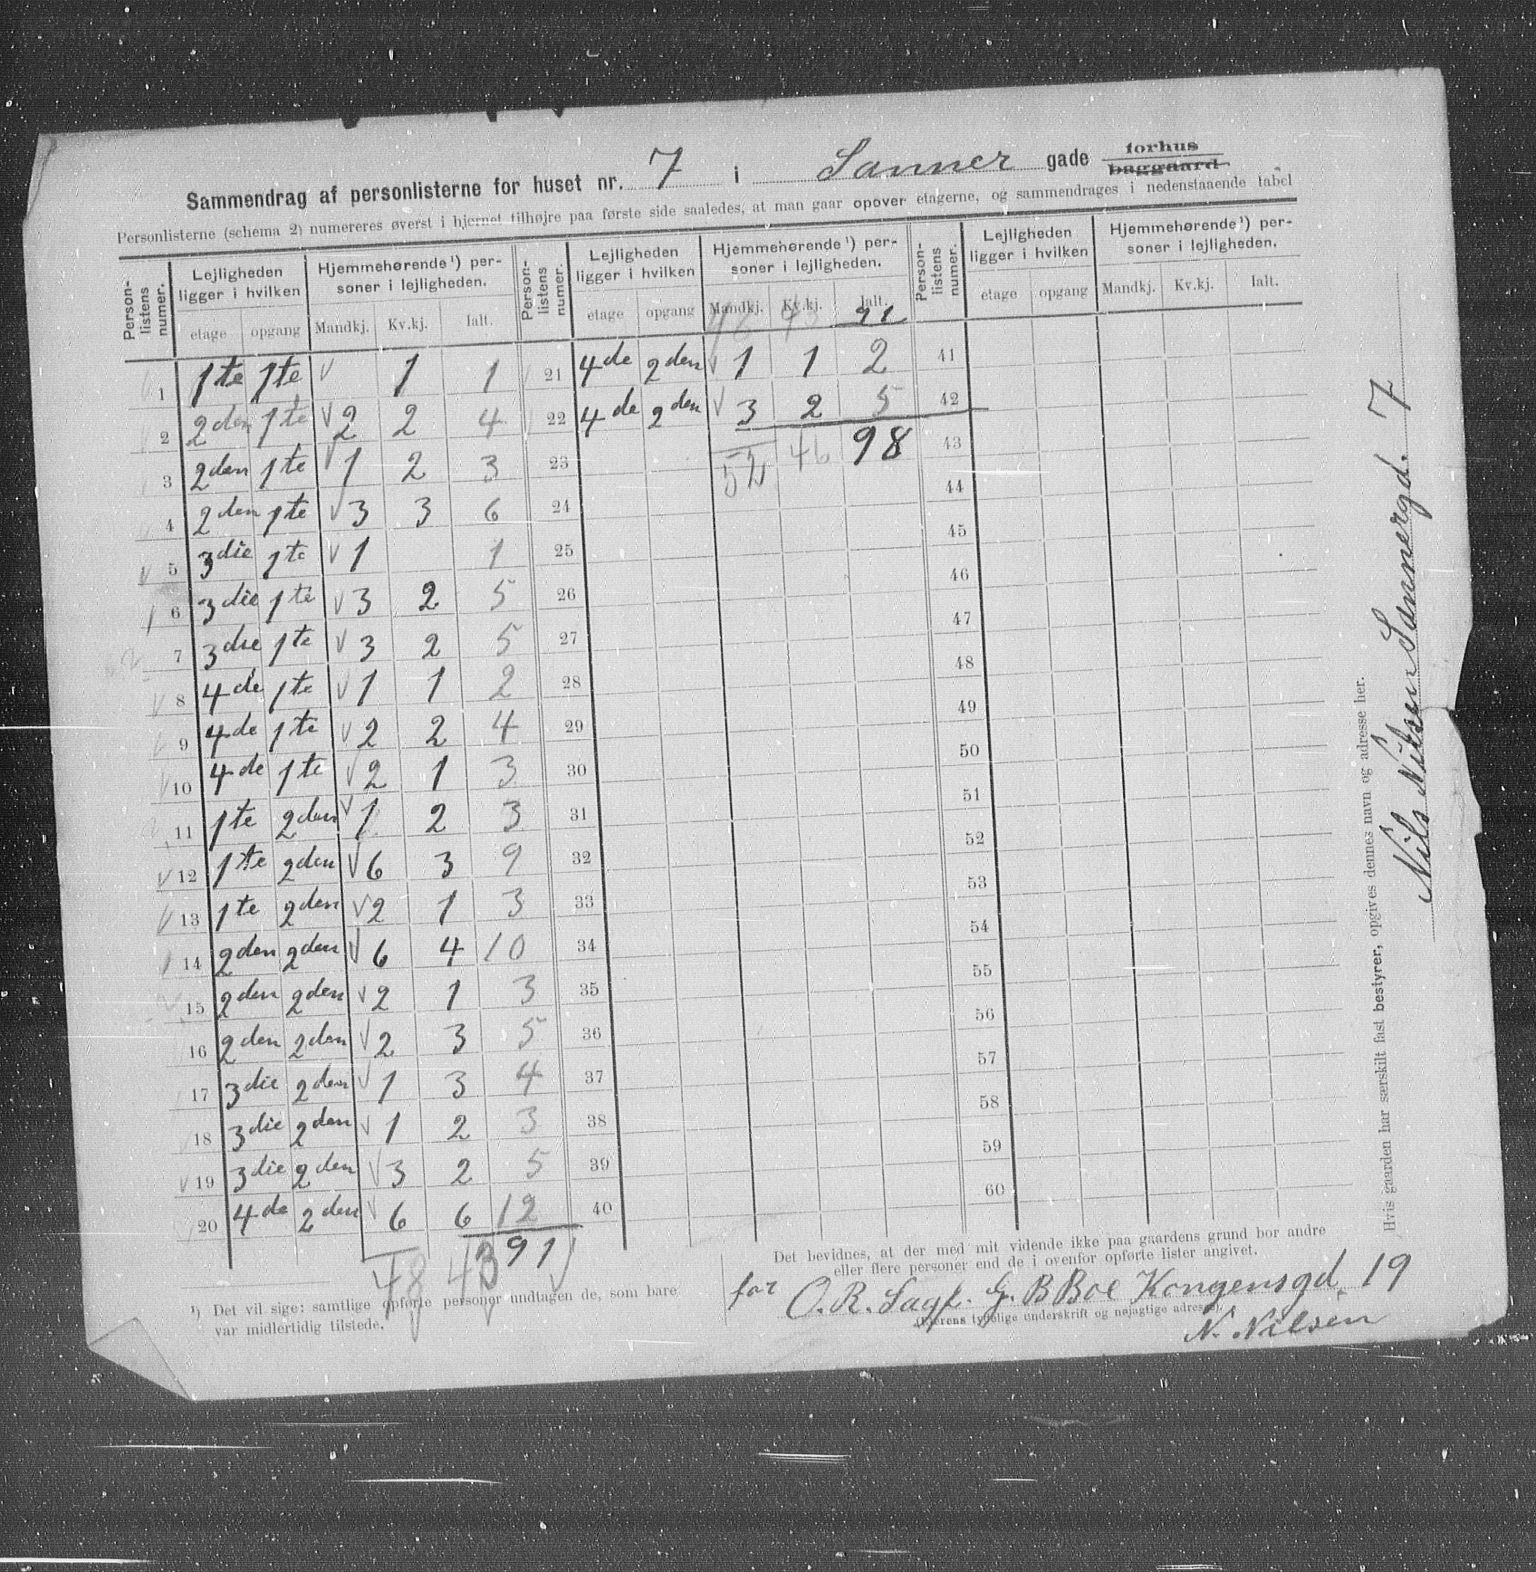 Sammendrag af personlisterne for huset nr. 7 i Sanner gade forhus baggaard
Personlisterne (schema 2) numereres øverst i hjørnet tilhøjre paa første side saaledes, at man gaar opover etagerne, og sammendrages i nedenstaaende tabel
Person-listens numer. | Lejligheden ligger i hvilken | Hjemmehørende ¹) personer i lejligheden. | Person-listens numer. | Lejligheden ligger i hvilken | Hjemmehørende ¹) personer i lejligheden. | Person-listens numer. | Lejligheden ligger i hvilken | Hjemmehørende ¹) personer i lejligheden.
etage | opgang | Mandkj. | Kv.kj. | Ialt. | etage | opgang | Mandkj. | Kv.kj. | Ialt. | etage | opgang | Mandkj. | Kv.kj. | Ialt.
48 43 91
1 1te 1te √ 1 1
2 2den 1te √ 2 2 4
3 2den 1te √ 1 2 3
4 2den 1te √ 3 3 6
5 3die 1te √ 1 1
6 3die 1te √ 3 2 5
7 3die 1te √ 3 2 5
8 4de 1te √ 1 1 2
9 4de 1te √ 2 2 4
10 4de 1te √ 2 1 3
11 1te 2den √ 1 2 3
12 1te 2den √ 6 3 9
13 1te 2den √ 2 1 3
14 2den 2den √ 6 4 10
15 2den 2den √ 2 1 3
16 2den 2den √ 2 3 5
17 3die 2den √ 1 3 4
18 3die 2den √ 1 2 3
19 3die 2den √ 3 2 5
20 4de 2den √ 6 6 12
48 43 91 √
21 4de 2den √ 1 1 2
22 4de 2den √ 3 2 5
23 52 46 98
24
25
26
27
28
29
30
31
32
33
34
35
36
37
38
39
40
41
42
43
44
45
46
47
48
49
50
51
52
53
54
55
56
57
58
59
60
¹) Det vil sige: samtlige opførte personer undtagen de, som bare
var midlertidig tilstede.
Det bevidnes, at der med mit vidende ikke paa gaardens grund bor andre
eller flere personer end de i ovenfor opførte lister angivet.
for O. R. Sagf. G. B Boe Kongensgd. 19
(Ejerens tydelige underskrift og nøjagtige adresse).
N. Nilsen
Hvis gaarden har særskilt fast bestyrer, opgives dennes navn og adresse her.
Nils Nilsen Sannergd. 7